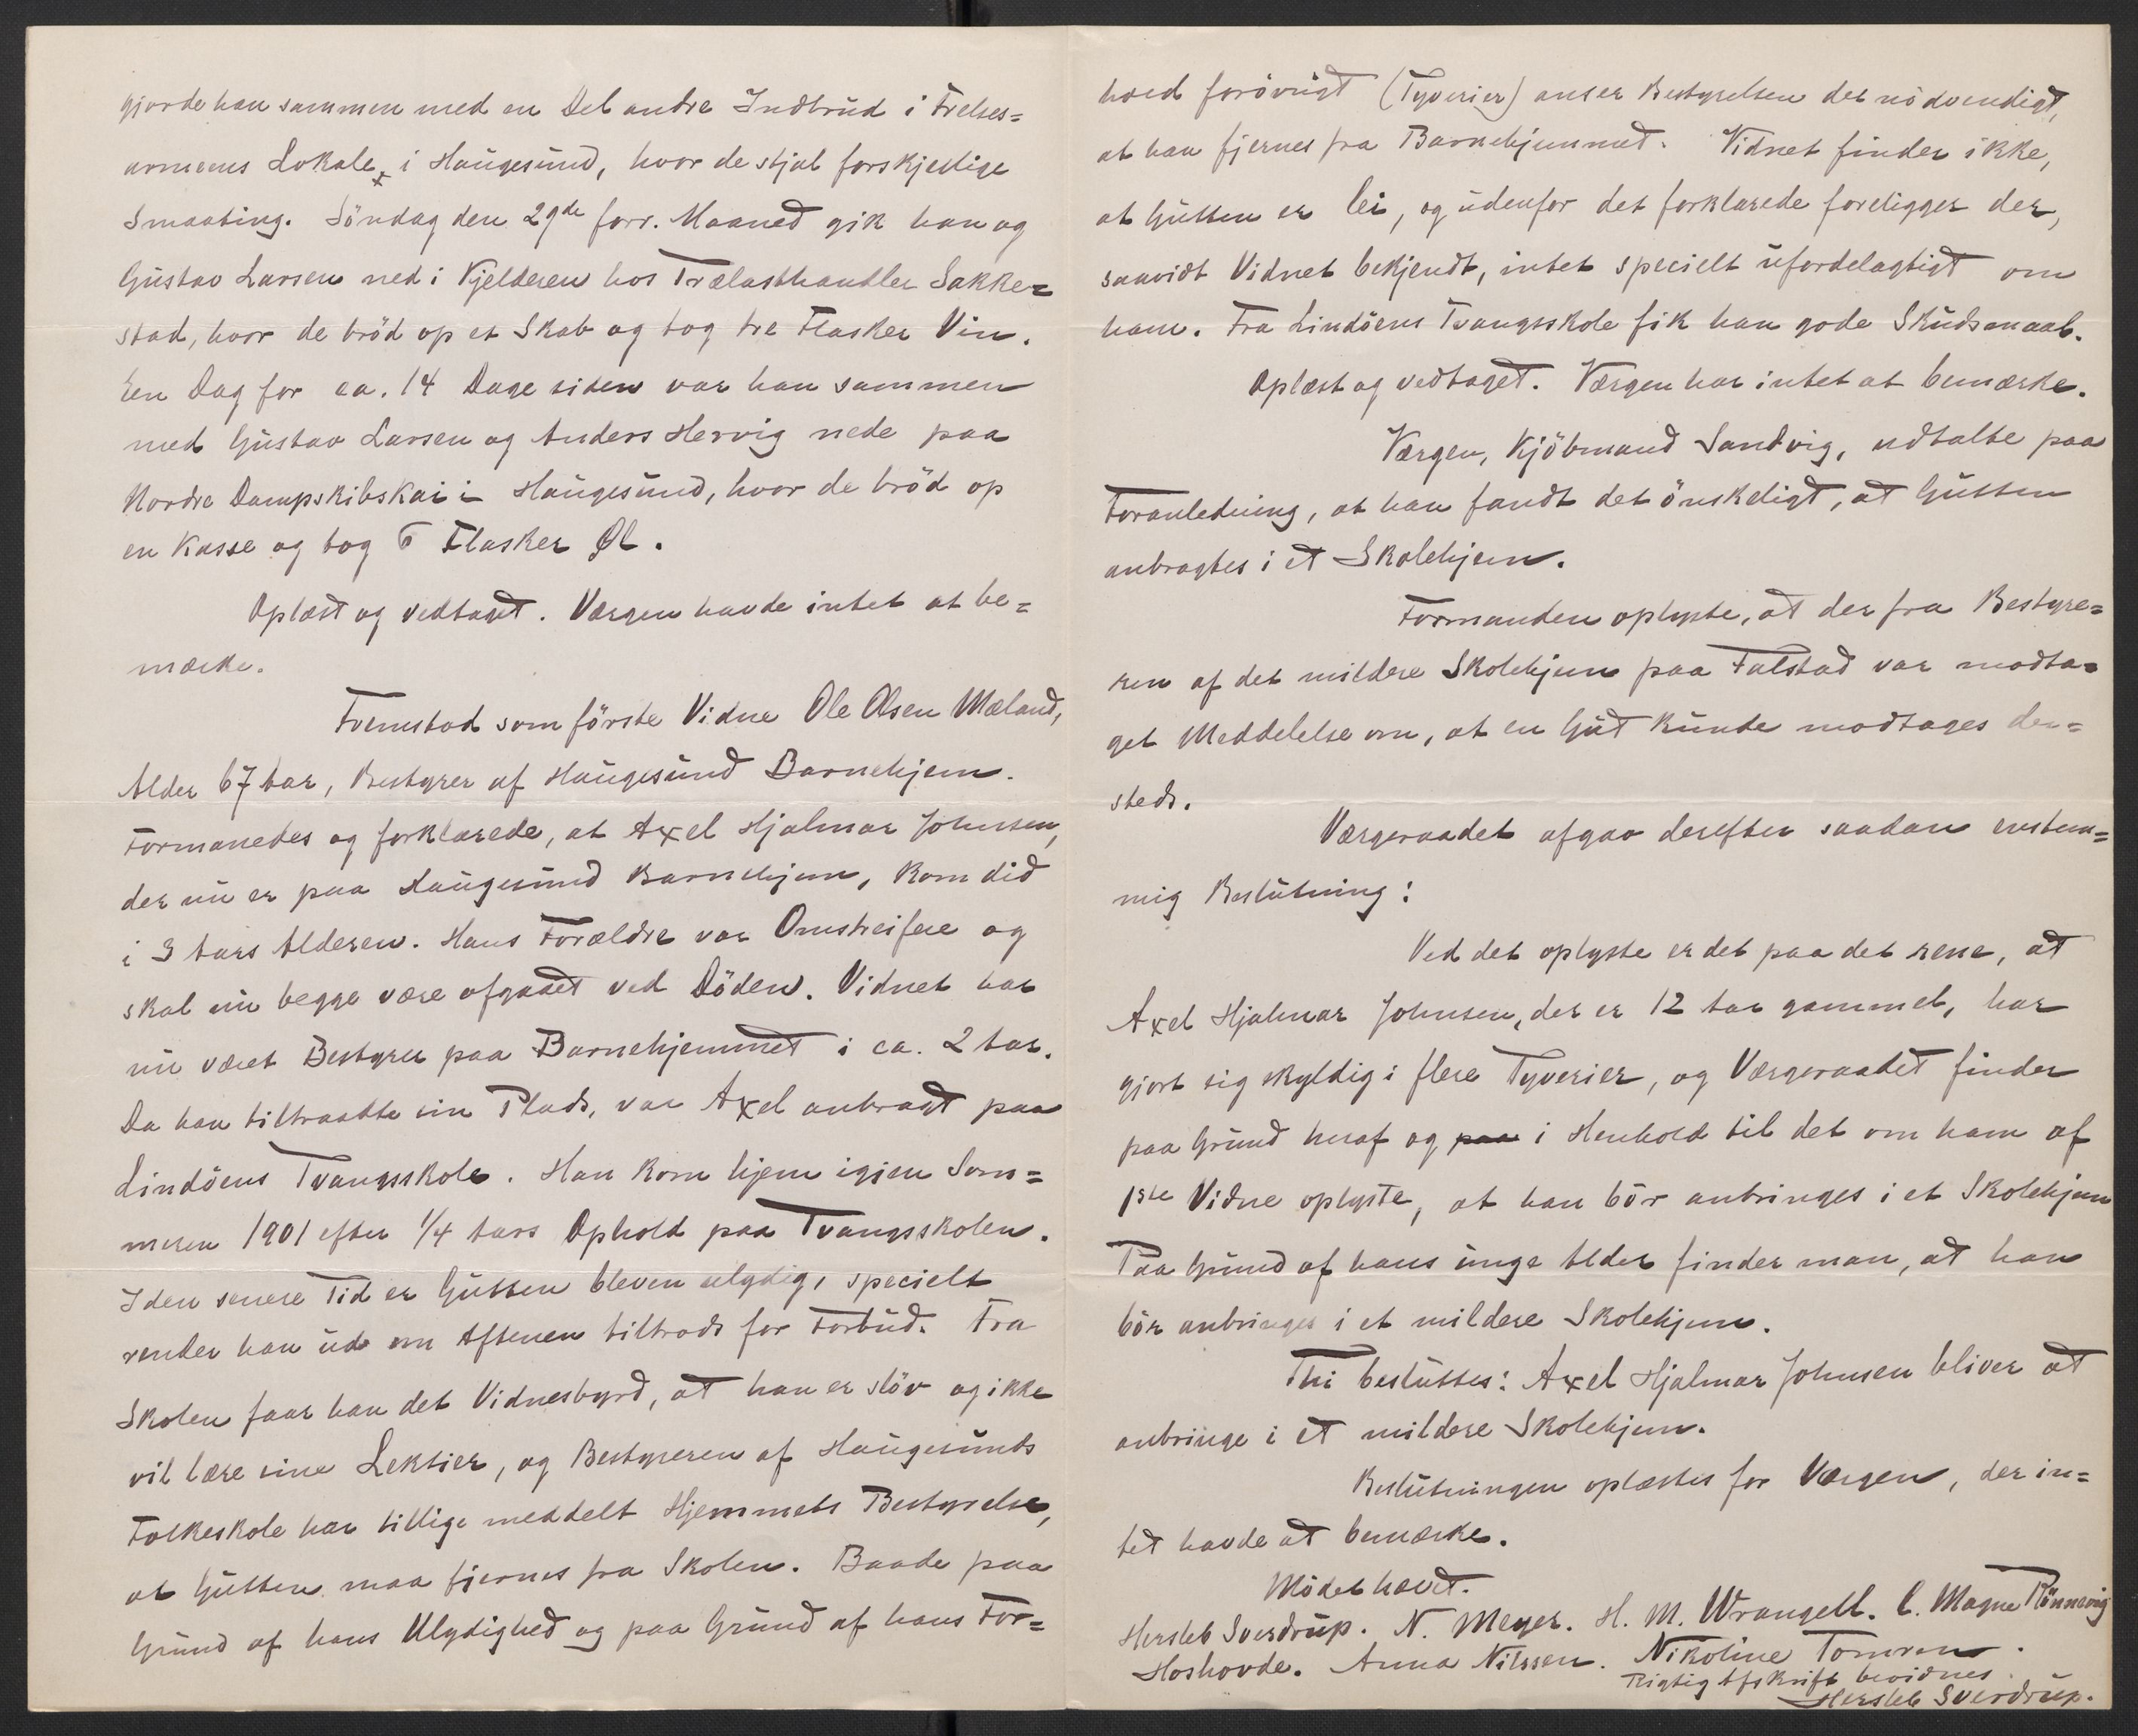 gjorde han sammen med en Del andre Indbrud i Frelses=
armeens Lokale i Haugesund, hvor de stjal forskjellige
Smaating. Söndag den 29de forr. Maaned gik han og
Gustav Larsen ned i Kjelderen hos Trælasthandler Sakke=
stad, hvor de bröd op et Skab og tog tre Flasker Vin.
En Dag for ca. 14 Dage siden var han sammen
med Gustav Larsen og Anders Hervig nede paa
Nordre Dampskibskai i Haugesund, hvor de bröd op
en Kasse og tog 6 Flasker Øl.
Oplæst og vedtaget. Værgen havde intet at be=
mærke.
Fremstod som förste Vidne Ole Olsen Mæland,
Alder 67 Aar, Bestyrer af Haugesund Barnehjem.
Formanedes og forklarede, at Axel Hjalmar Johnsen,
der nu er paa Haugesund Barnehjem, kom did
i 3 Aars Alderen. Hans Forældre var Omstreifere og
skal nu begge være afgaaet ved Döden. Vidnet har
nu været Bestyrer paa Barnehjemmet i ca. 2 Aar.
Da han tiltraadte sin Plads, var Axel anbragt paa
Lindöens Tvangsskole. Han kom hjem igjen Som=
meren 1901 efter 1/4 Aars Ophold paa Tvangsskolen.
I den senere Tid er Gutten bleven ulydig, specielt
render han ud om Aftenen tiltrods for Forbud. Fra
Skolen faar han det Vidnesbyrd, at han er slöv og ikke
vil lære sine Lektier, og Bestyreren af Haugesunds
Folkeskole har tillige meddelt Hjemmets Bestyrelse,
at Gutten maa fjernes fra Skolen. Baade paa
Grund af hans Ulydighed og paa Grund af hans For=
hold forövrigt (Tyverier) anser Bestyrelsen det nödvendigt,
at han fjernes fra Barnehjemmet. Vidnet finder ikke,
at Gutten er lei, og udenfor det forklarede foreligger der,
saavidt Vidnet bekjendt, intet specielt ufordelagtigt om
ham. Fra Lindöens Tvangsskole fik han gode Skudsmaal.
Oplæst og vedtaget. Værgen har intet at bemærke.
Værgen, Kjöbmand Sandvig, udtalte paa
Foranledning, at han fandt det önskeligt, at Gutten
anbragtes i et Skolehjem.
Formanden oplyste, at der fra Bestyre=
ren af det mildere Skolehjem paa Falstad var modta=
get Meddelelse om, at en Gut kunde modtages der=
steds.
Værgeraadet afgav derefter saadan enstem=
mig Beslutning:
Ved det oplyste er det paa det rene, at
Axel Hjalmar Johnsen, der er 12 Aar gammel, har
gjort sig skyldig i flere Tyverier, og Værgeraadet finder
paa Grund heraf og paa i Henhold til det om ham af
1ste Vidne oplyste, at han bör anbringes i et Skolehjem
Paa Grund af hans unge Alder finder man, at han
bör anbringes i et mildere Skolehjem.
Thi besluttes: Axel Hjalmar Johnsen bliver at
anbringe i et mildere Skolehjem.
Beslutningen oplæstes for Værgen, der in=
tet havde at bemærke.
Mödet hævet.
Hersleb Sverdrup. N. Meyer. H. M. Wrangell. C. Magne Rönnevig
Hoshovde. Anna Nilssen. Nikoline Tomren.
Rigtig Afskrift bevidnes.
Hersleb Sverdrup.